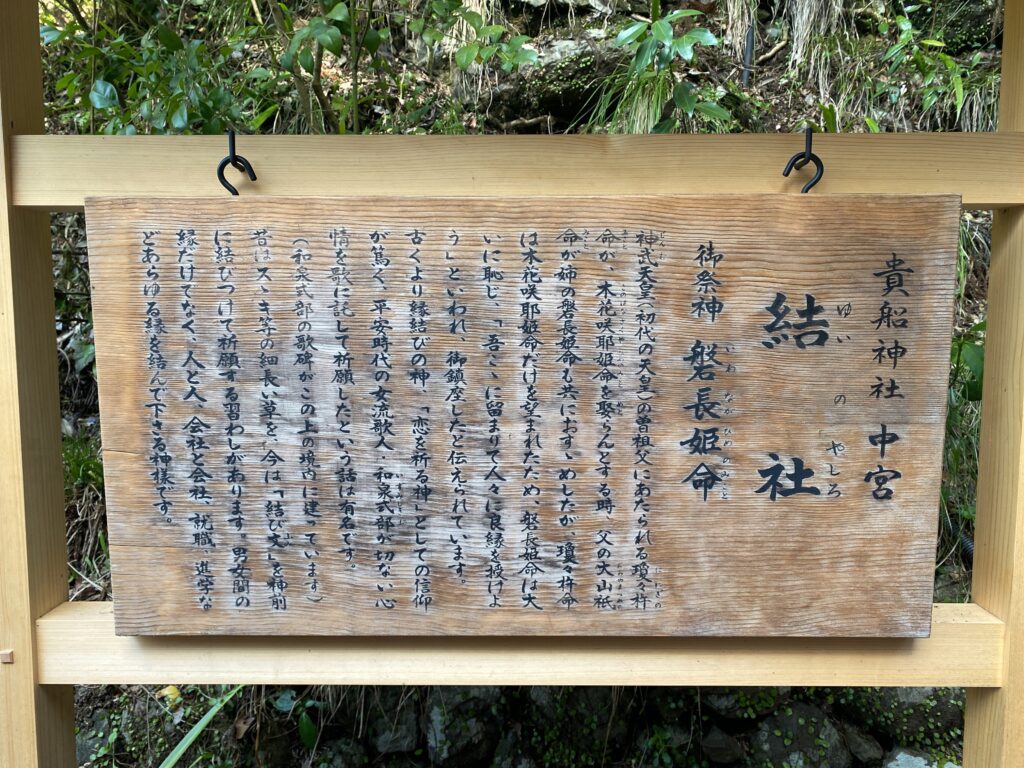 貴船神社 中宮
結社
ゆいのやしろ
御祭神 磐長姫命
いわながひめのみこと
神武天皇(初代の天皇)の曽祖父にあたられる瓊々杵
命が、木花咲耶姫命を娶らんとする時、父の大山祇
命が姉の磐長姫命も共におすゝめしたが、瓊々杵命
は木花咲耶姫命だけを望まれたため、磐長姫命は大
いに恥じ、「吾こゝに留まりて人々に良縁を授けよ
う」といわれ、御鎮座したと伝えられています。
古くより縁結びの神、「恋を祈る神」としての信仰
が篤く、平安時代の女流歌人、和泉式部が切ない心
情を歌に託して祈願したという話は有名です。
(和泉式部の歌碑がこの上の境内に建っています)
昔はスゝキ等の細長い草を、今は「結び文」を神前
に結びつけて祈願する習わしがあります。男女間の
縁だけでなく、人と人、会社と会社、就職、進学な
どあらゆる縁を結んで下さる神様です。